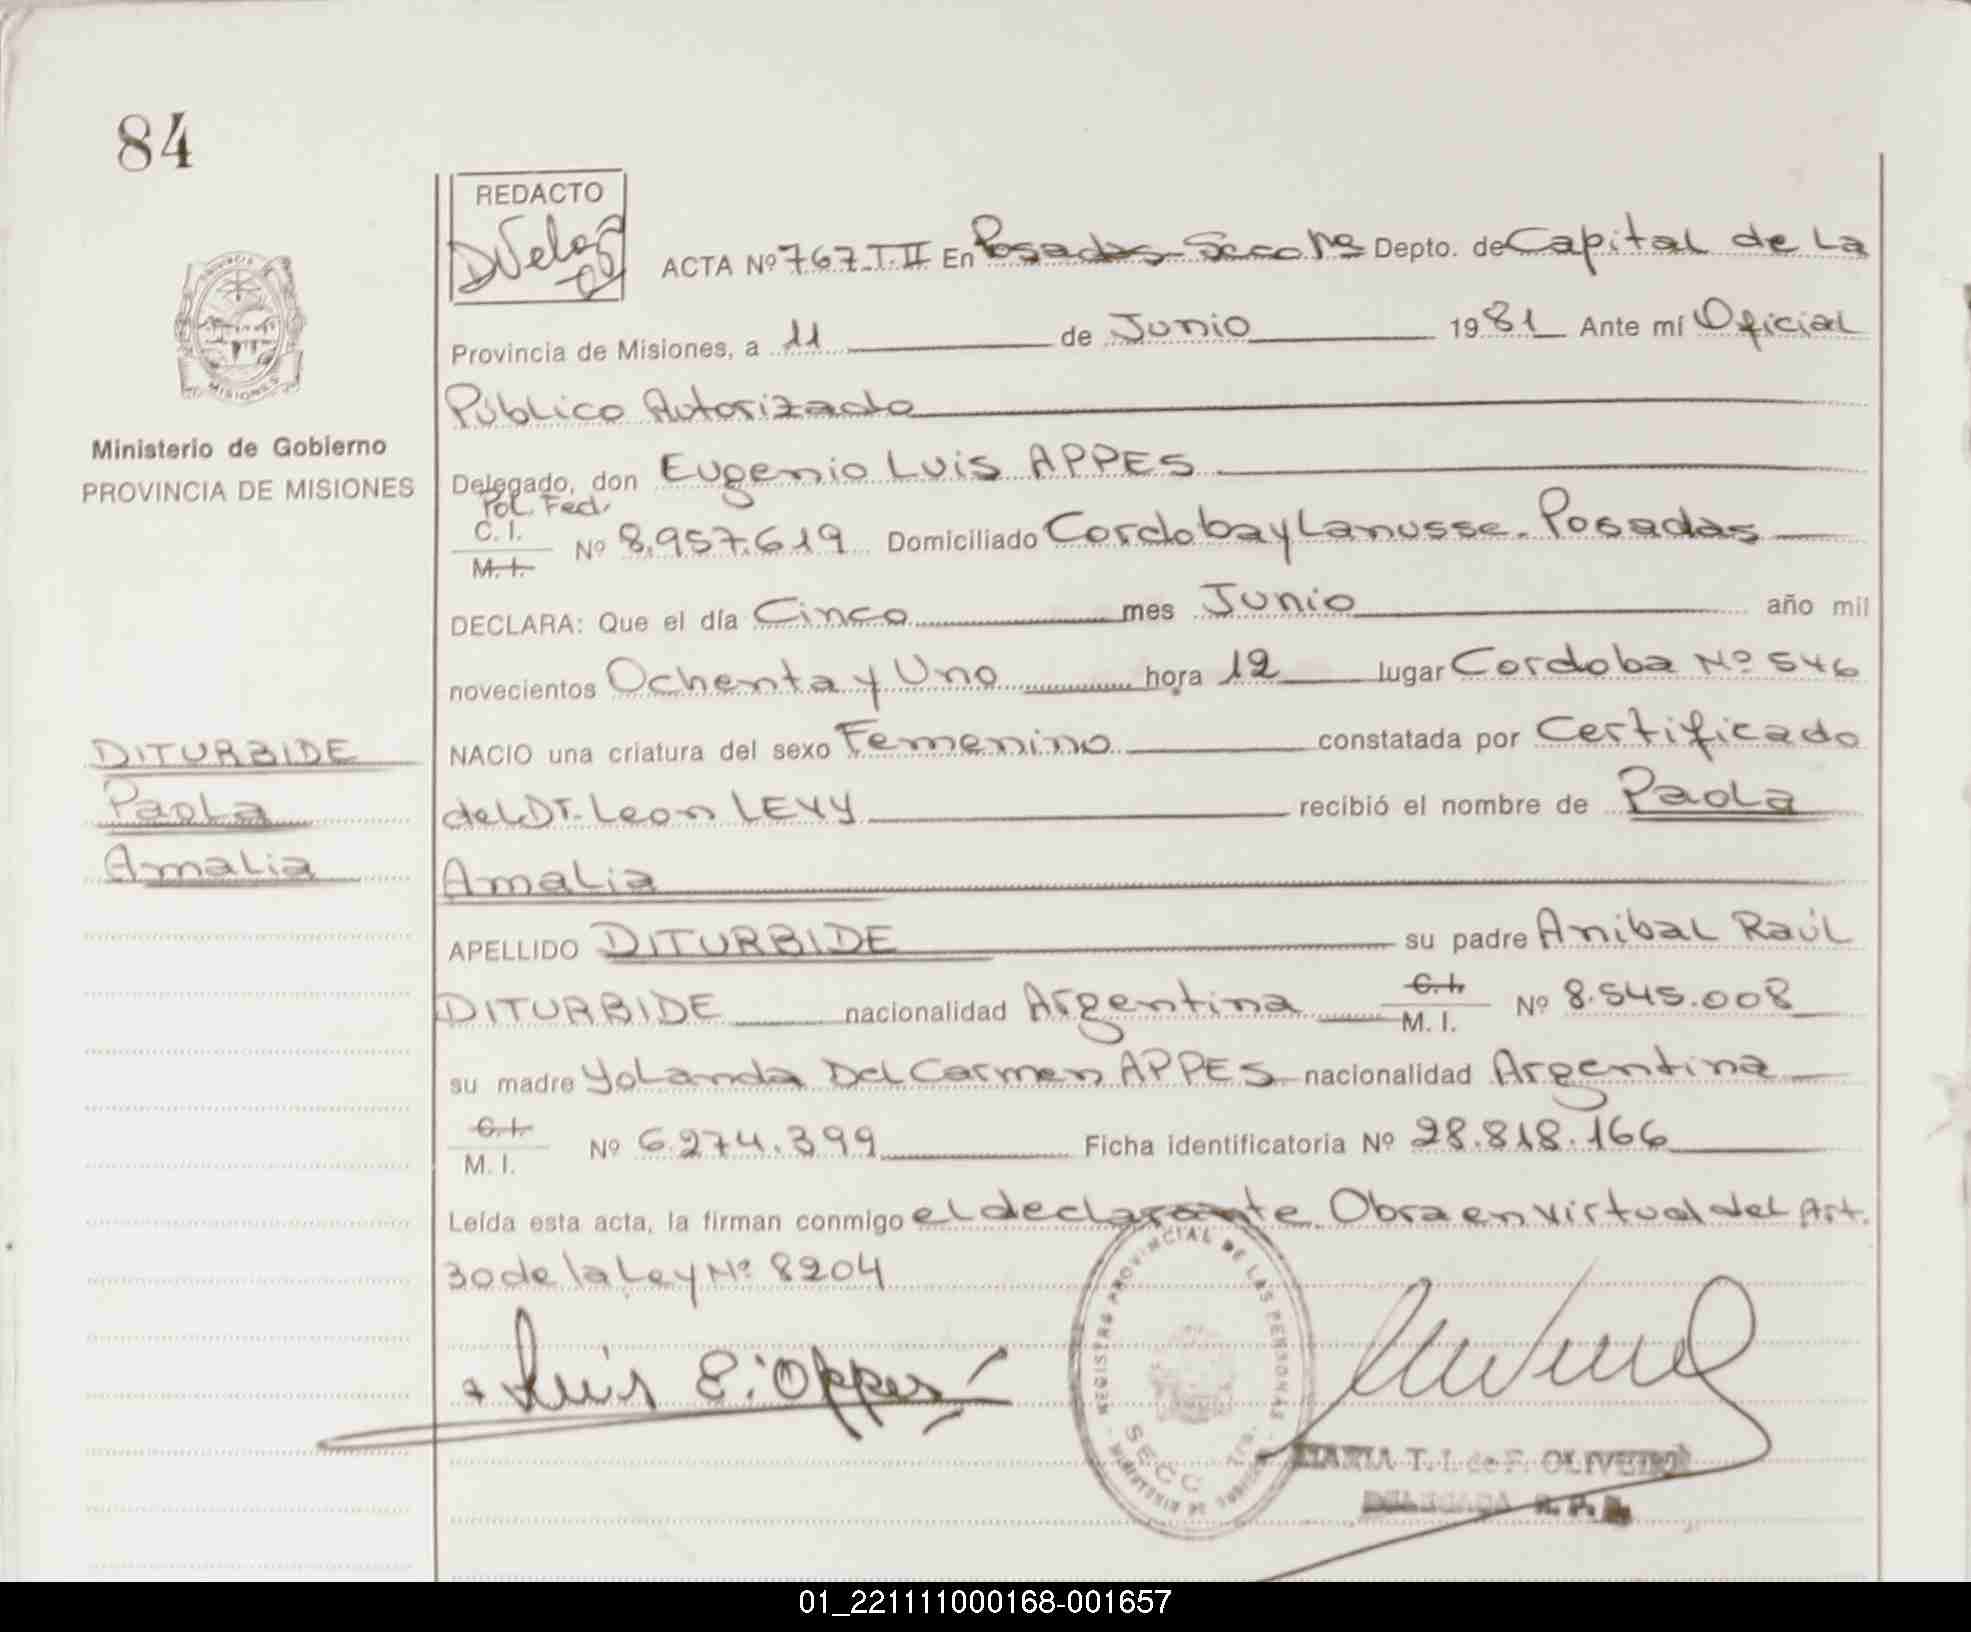 84
REDACTO
ACTA Nº 767 T.II En Posadas Secc 1ra Depto. de Capital de La
Provincia de Misiones, a 11 de Junio 1981 Ante mí Oficial
Público Autorizado
Ministerio de Gobierno
PROVINCIA DE MISIONES
Delegado, don Eugenio Luis APPES
Pol. Fed.
C. I.
M. I. Nº 8.957.619 Domiciliado Cordoba y Lanusse. Posadas
DECLARA: Que el día Cinco mes Junio año mil
novecientos Ochenta y Uno hora 12 lugar Cordoba Nº 546
NACIO una criatura del sexo Femenino constatada por Certificado
del Dr. Leon LEVY recibió el nombre de Paola
Amalia
DITURBIDE
Paola
Amalia
APELLIDO DITURBIDE su padre Anibal Raúl
DITURBIDE nacionalidad Argentina C. I. M. I. Nº 8.545.008
su madre Yolanda Del Carmen APPES nacionalidad Argentina
C. I.
M. I. Nº 6.274.399 Ficha identificatoria Nº 28.818.166
Leída esta acta, la firman conmigo el declarante. Obra en virtud del Art.
30 de la Ley Nº 8204
Luis E. Appes
REGISTRO PROVINCIAL DE LAS PERSONAS
SECC. 1ra.
MARIA T. I. de F. OLIVEIRA
DELEGADA R. P. P.
01_221111000168-001657